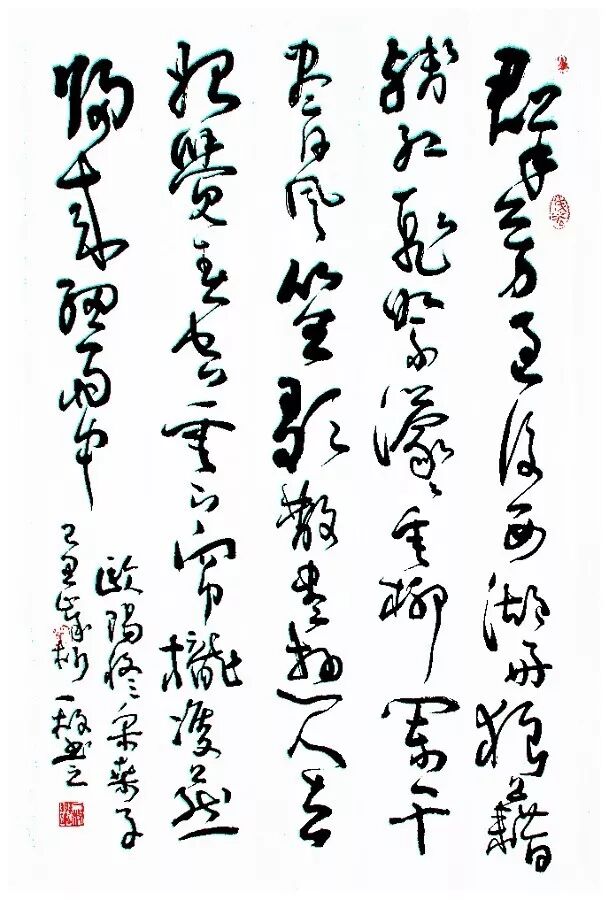 群芳過後西湖好狼藉
殘紅飛絮濛濛垂柳闌干
盡日風笙歌散盡遊人去
始覺春空垂下簾櫳雙燕
歸來細雨中
歐陽修采桑子
己丑歲 一書之